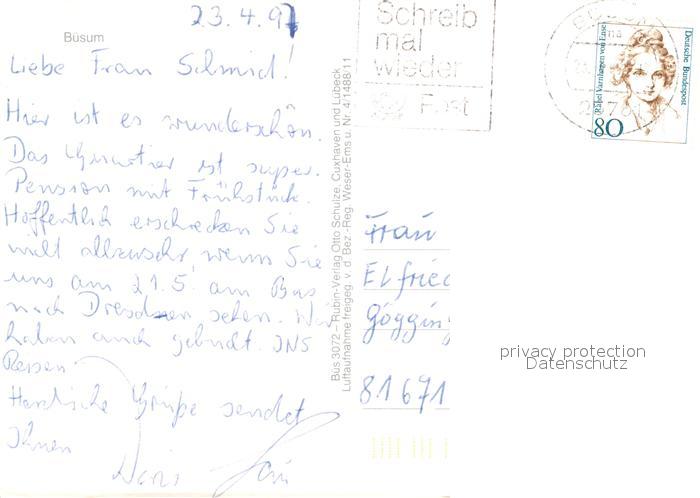 23.4.97
Büsum
Liebe Frau Schmid!
Hier ist es wunderschön.
Das Quartier ist super.
Pension mit Frühstück.
Hoffentlich erschrecken Sie
nicht allzusehr wenn Sie
uns am 21.5. am Bus
nach Dresden sehen. Wir
haben auch gebucht. INS
Reisen.
Herzliche Grüße sendet
Ihnen
Doris
Büs 3072 – Rubin-Verlag Otto Schulze, Cuxhaven und Lübeck
Luftaufnahme freigeg. v. d. Bez.-Reg. Weser-Ems u. Nr. 4/1488/11
Schreib
mal
wieder
Post
Rahel Varnhagen von Ense
Deutsche Bundespost
80
Frau
Elfried
Gögging
81671
privacy protection
Datenschutz